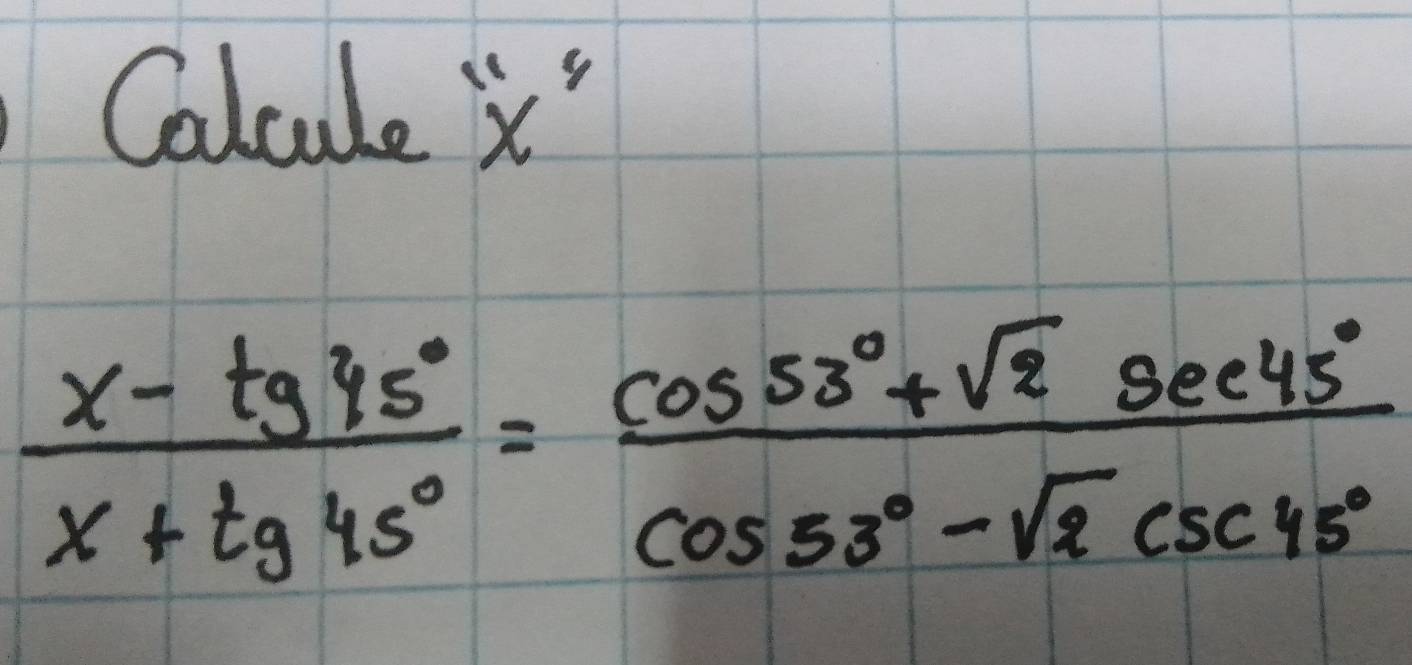 ) Calcule "x"
x - tg 45° / x + tg 45° = cos 53° + √2 sec 45° / cos 53° - √2 csc 45°